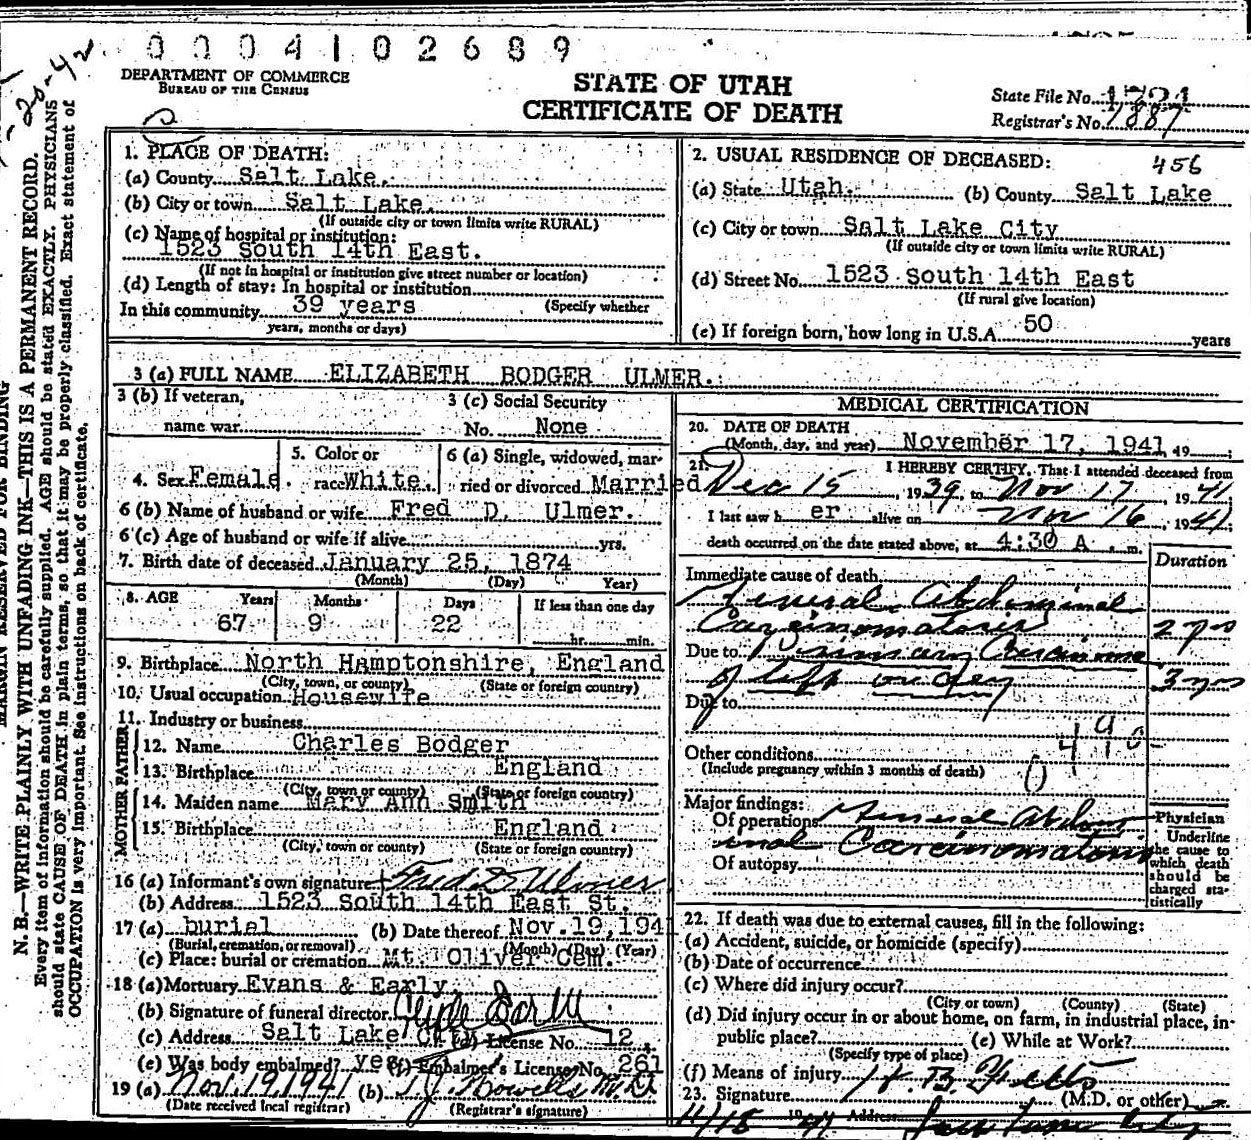 0004102689
DEPARTMENT OF COMMERCE
BUREAU OF THE CENSUS
STATE OF UTAH
CERTIFICATE OF DEATH
State File No. 1721
Registrar's No. 1887
1. PLACE OF DEATH:
(a) County Salt Lake.
(b) City or town Salt Lake.
(If outside city or town limits write RURAL)
(c) Name of hospital or institution:
1523 South 14th East.
(If not in hospital or institution give street number or location)
(d) Length of stay: In hospital or institution
In this community 39 years (Specify whether
years, months or days)
2. USUAL RESIDENCE OF DECEASED: 456
(a) State Utah. (b) County Salt Lake
(c) City or town Salt Lake City
(If outside city or town limits write RURAL)
(d) Street No. 1523 South 14th East
(If rural give location)
(e) If foreign born, how long in U.S.A. 50 years
3 (a) FULL NAME ELIZABETH BODGER ULMER.
3 (b) If veteran, 3 (c) Social Security
name war No. None
4. Sex Female. 5. Color or race White. 6 (a) Single, widowed, married or divorced Married
6 (b) Name of husband or wife Fred D. Ulmer.
6 (c) Age of husband or wife if alive yrs.
7. Birth date of deceased January 25, 1874
(Month) (Day) Year)
8. AGE Years Months Days If less than one day
67 9 22 hr. min.
9. Birthplace North Hamptonshire, England
(City, town, or county) (State or foreign country)
10. Usual occupation Housewife
11. Industry or business
FATHER
12. Name Charles Bodger
13. Birthplace England
(City, town or county) (State or foreign country)
MOTHER
14. Maiden name Mary Ann Smith
15. Birthplace England
(City, town or county) (State or foreign country)
16 (a) Informant's own signature Fred D Ulmer
(b) Address 1523 South 14th East St.
17 (a) burial (b) Date thereof Nov.19,1941
(Burial, cremation, or removal) (Month) (Day) (Year)
(c) Place: burial or cremation Mt. Oliver Cem.
18 (a) Mortuary Evans & Early,
(b) Signature of funeral director
(c) Address Salt Lake City (d) License No. 12
(e) Was body embalmed? yes (f) Embalmer's License No. 261
19 (a) Nov. 19, 1941 (b) T.J. Howells M.D.
(Date received local registrar) (Registrar's signature)
MEDICAL CERTIFICATION
20. DATE OF DEATH
(Month, day, and year) November 17, 1941 19
21. I HEREBY CERTIFY, That I attended deceased from
Dec 15, 1939, to Nov 17, 1941
I last saw h er alive on Nov 16, 1941
death occurred on the date stated above, at 4:30 A. m.
Duration
Immediate cause of death
General Abdominal
Carcinomatosis 2 yrs
Due to Primary Carcinoma
of left ovary 3 yrs
Due to
Other conditions
(Include pregnancy within 3 months of death)
Major findings:
Of operations General Abdom
inal Carcinomatosis
Of autopsy
Physician
Underline
the cause to
which death
should be
charged sta-
tistically
22. If death was due to external causes, fill in the following:
(a) Accident, suicide, or homicide (specify)
(b) Date of occurrence
(c) Where did injury occur?
(City or town) (County) (State)
(d) Did injury occur in or about home, on farm, in industrial place, in-
public place? (e) While at Work?
(Specify type of place)
(f) Means of injury
23. Signature (M.D. or other)
11/18 1941 Address Salt Lake City
MARGIN RESERVED FOR BINDING
N. B.—WRITE PLAINLY WITH UNFADING INK—THIS IS A PERMANENT RECORD.
Every item of information should be carefully supplied. AGE should be stated EXACTLY. PHYSICIANS
should state CAUSE OF DEATH in plain terms, so that it may be properly classified. Exact statement of
OCCUPATION is very important. See instructions on back of certificate.